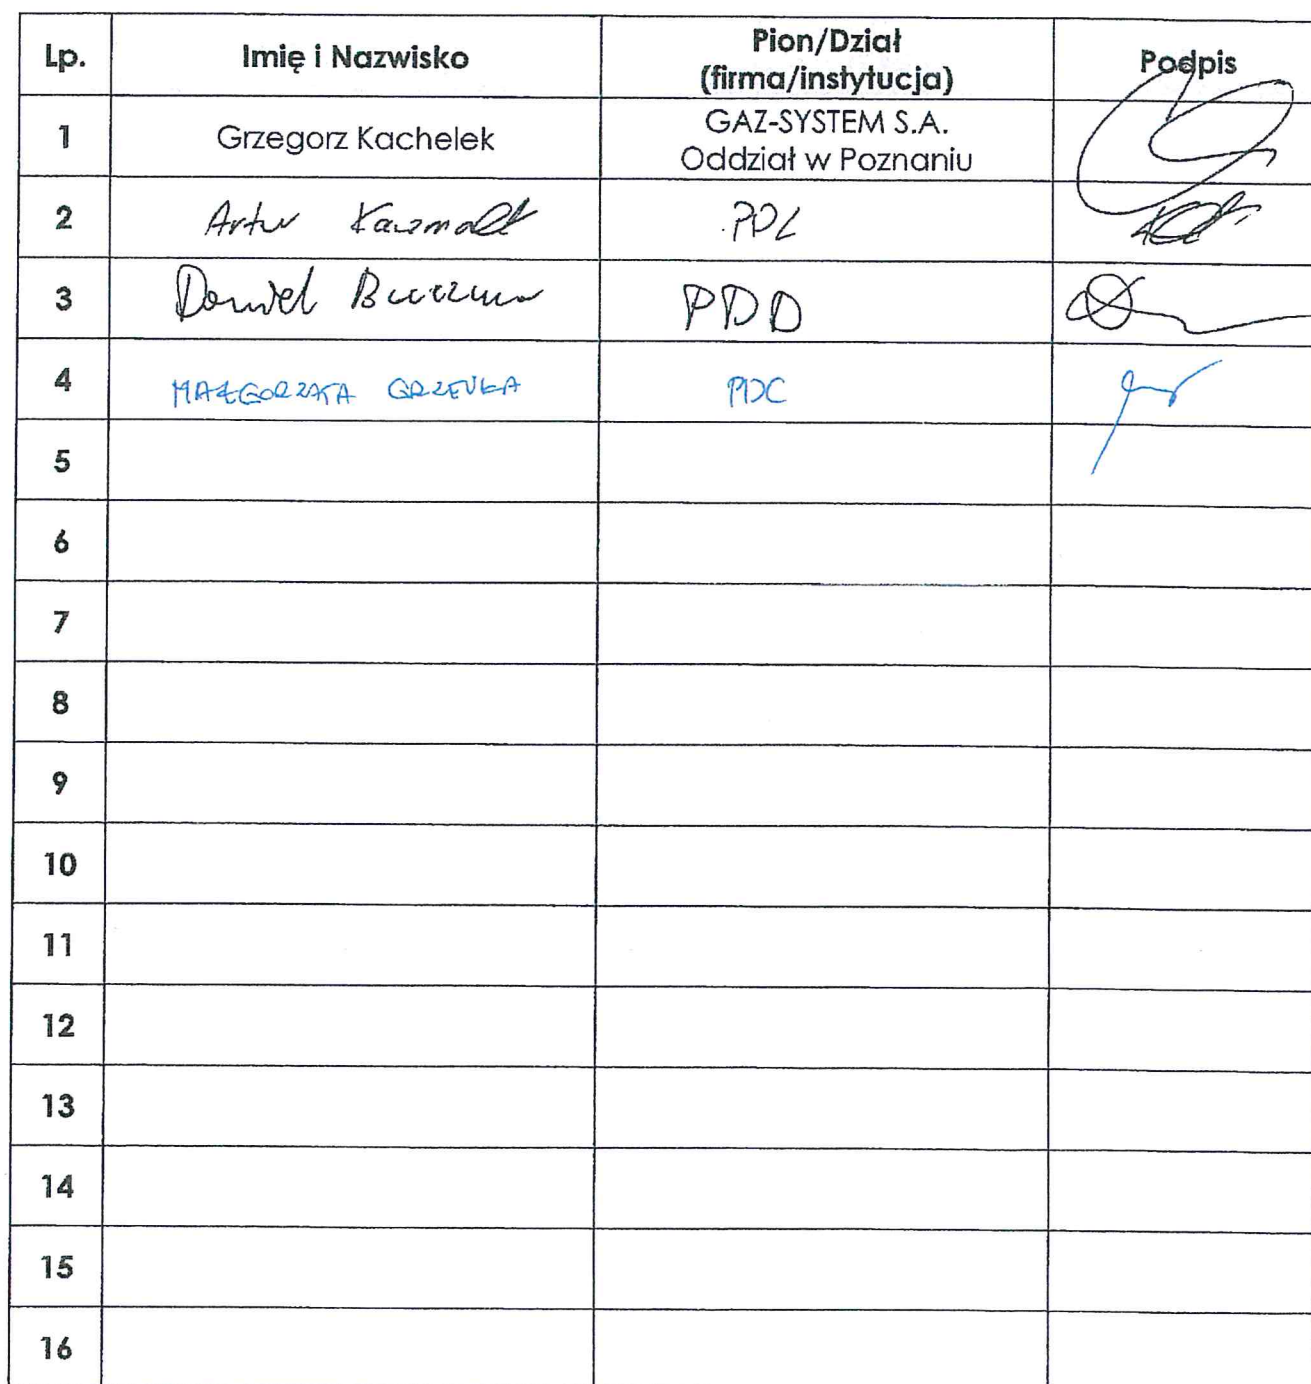 Lp. Imię i Nazwisko Pion/Dział (firma/instytucja) Podpis
1 Grzegorz Kachelek GAZ-SYSTEM S.A. Oddział w Poznaniu
2 Artur PDL
3 Daniel PDD
4 MAŁGORZATA PDC
5
6
7
8
9
10
11
12
13
14
15
16